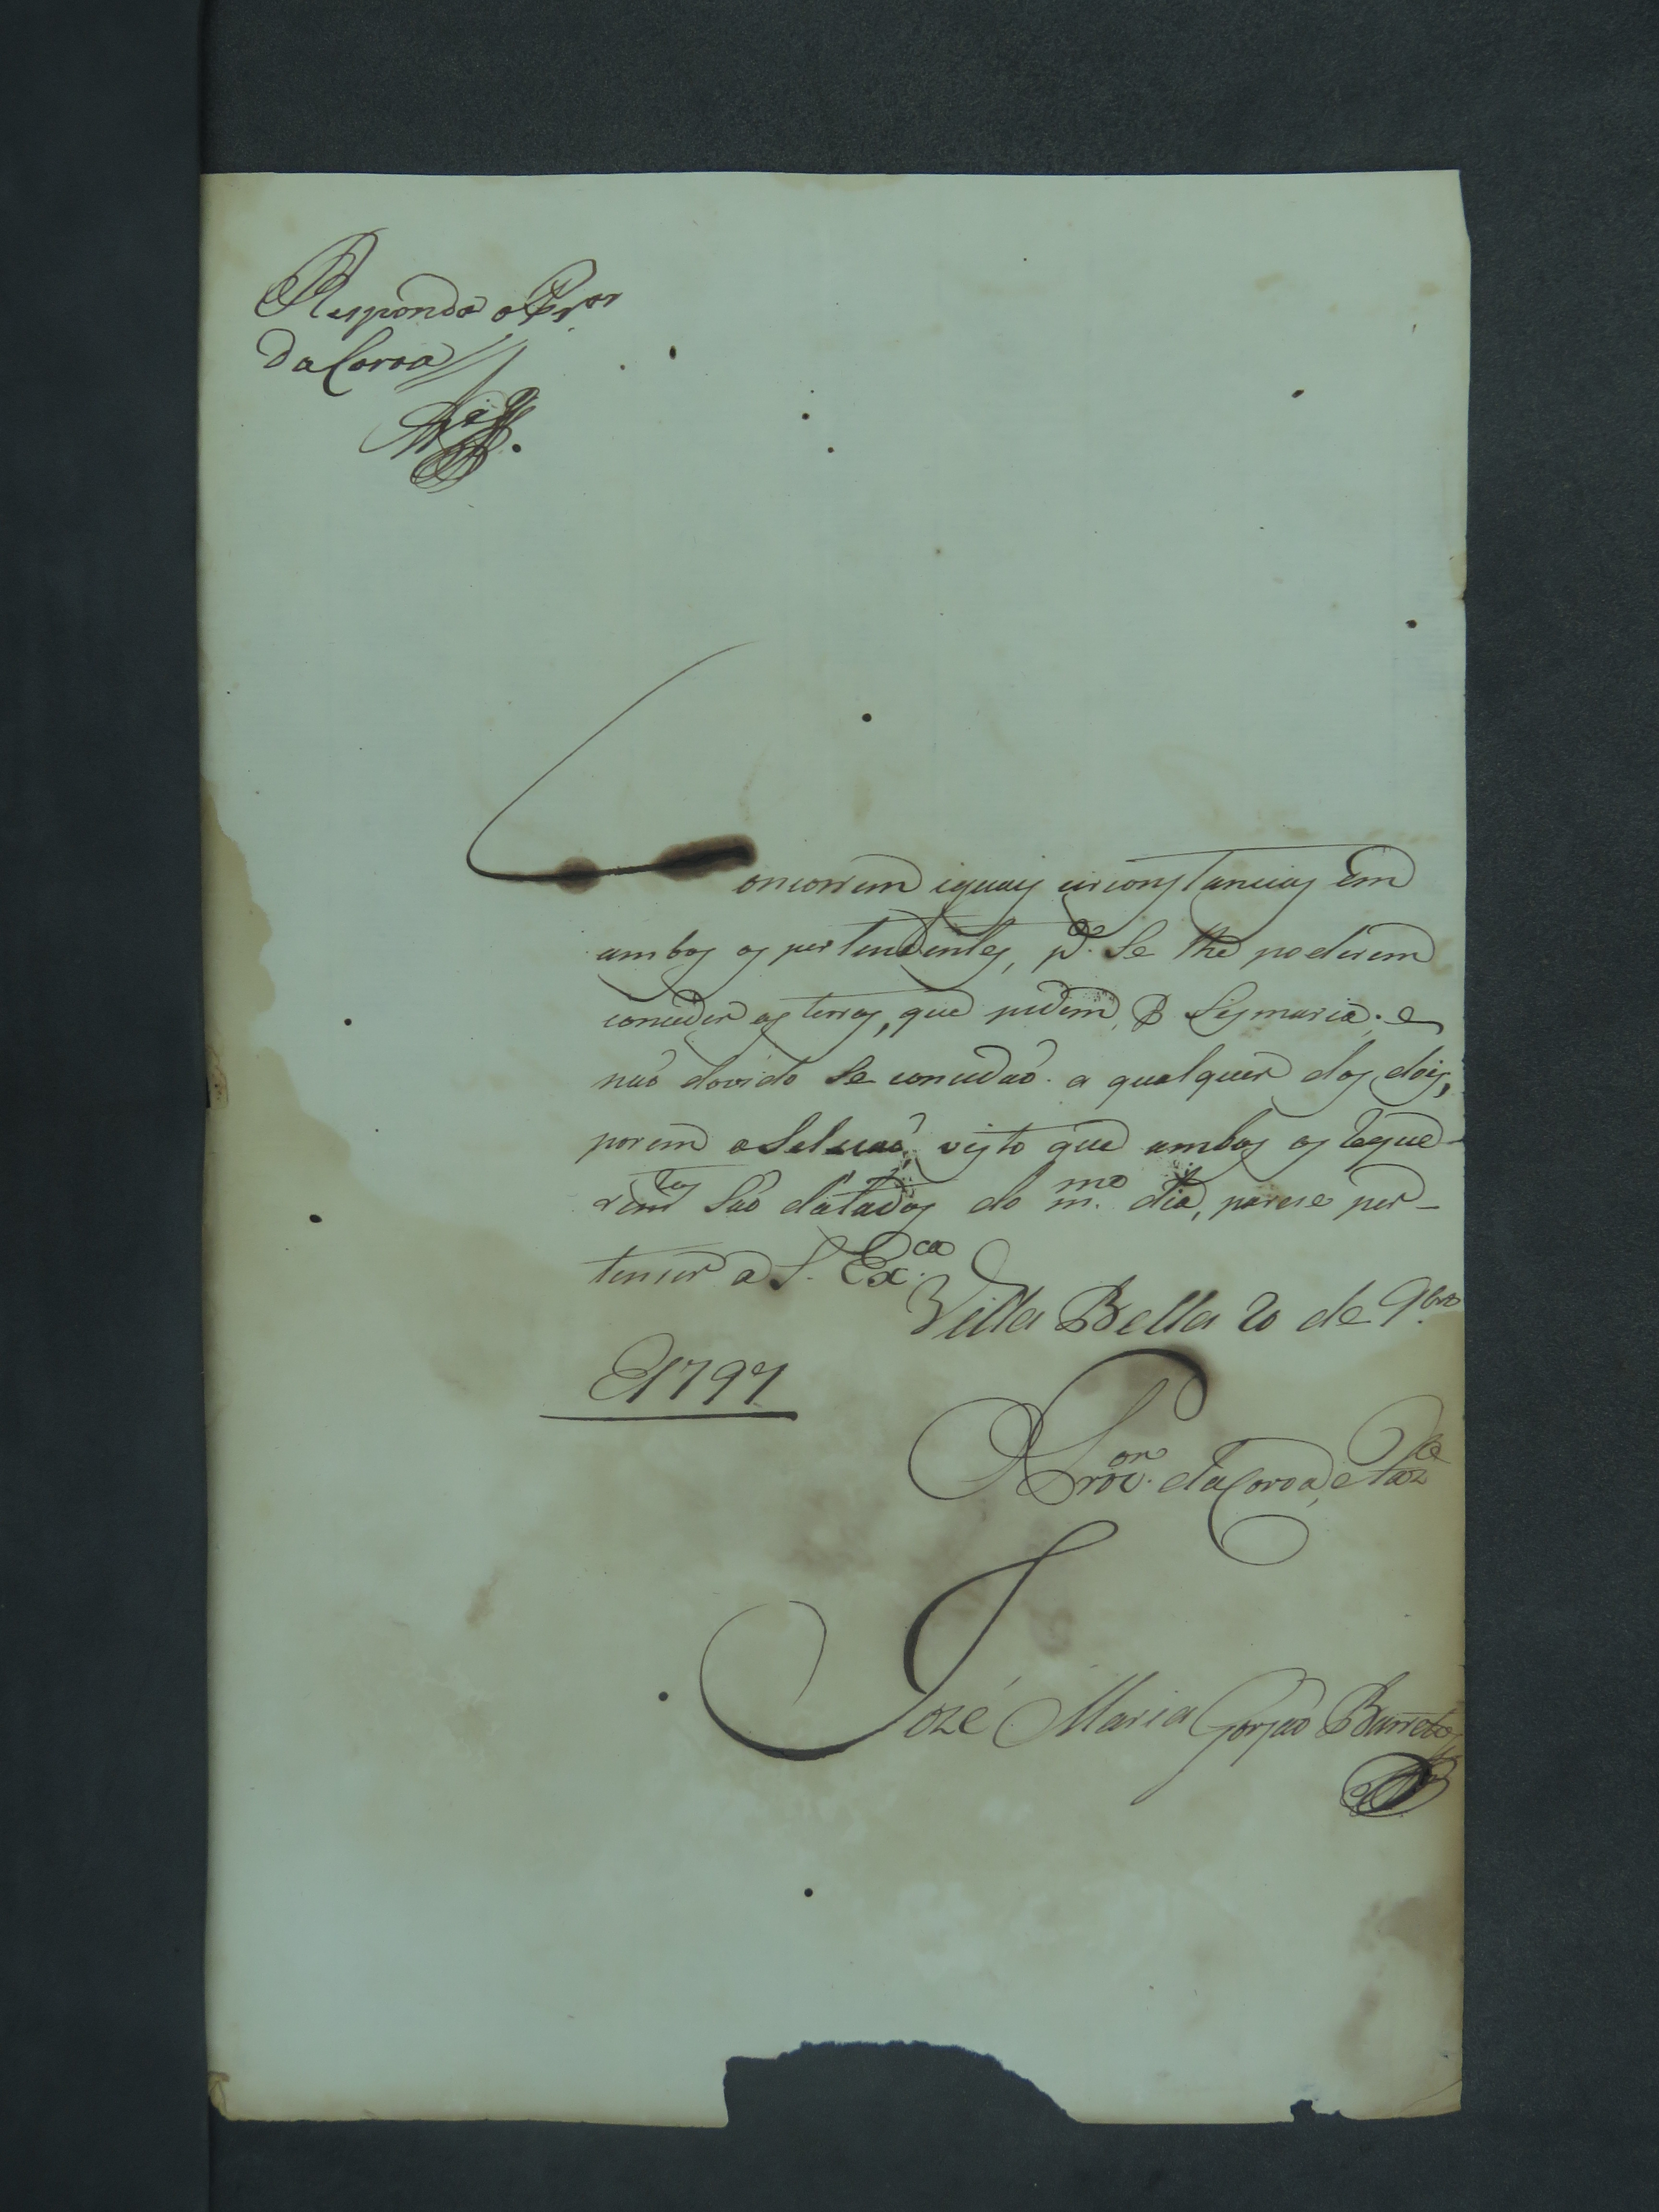 Responda o P.or
da Coroa
Concorrem iguais circonstancias em
ambos os pertendentes, p.a Se lhe poderem
conceder as terras, que pedem, P Sismaria; e
naõ dovido Se concedaõ a qualquer dos dois,
porem a Seleçaõ, visto que ambos os reque-
rem.tos Saõ datados do m.mo dia, parese per-
tencer a S. Ex.ca
Villa Bella 20 de 9.bro
1797
O Prov.or da Coroa, e Faz.da
Jozé Maria Gorjaõ Barreto